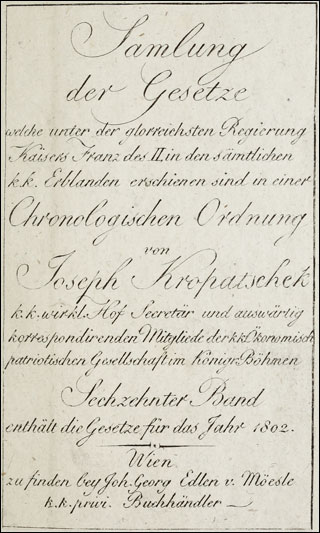 Sämlung
der Gesetze
welche unter der glorreichsten Regierung
Kaisers Franz des II. in den sämtlichen
k.k. Erblanden erschienen sind in einer
Chronologischen Ordnung
von
Joseph Kropatschek
k.k. wirkl. Hof Secretär und auswärtig
korrespondirenden Mitgliede der k.k. Ökonomisch
patriotischen Gesellschaft im Königr. Böhmen
Sechzehnter Band
enthält die Gesetze für das Jahr 1802.
Wien
zu finden bey Joh. Georg Edlen v. Möesle
k.k. privi. Buchhändler